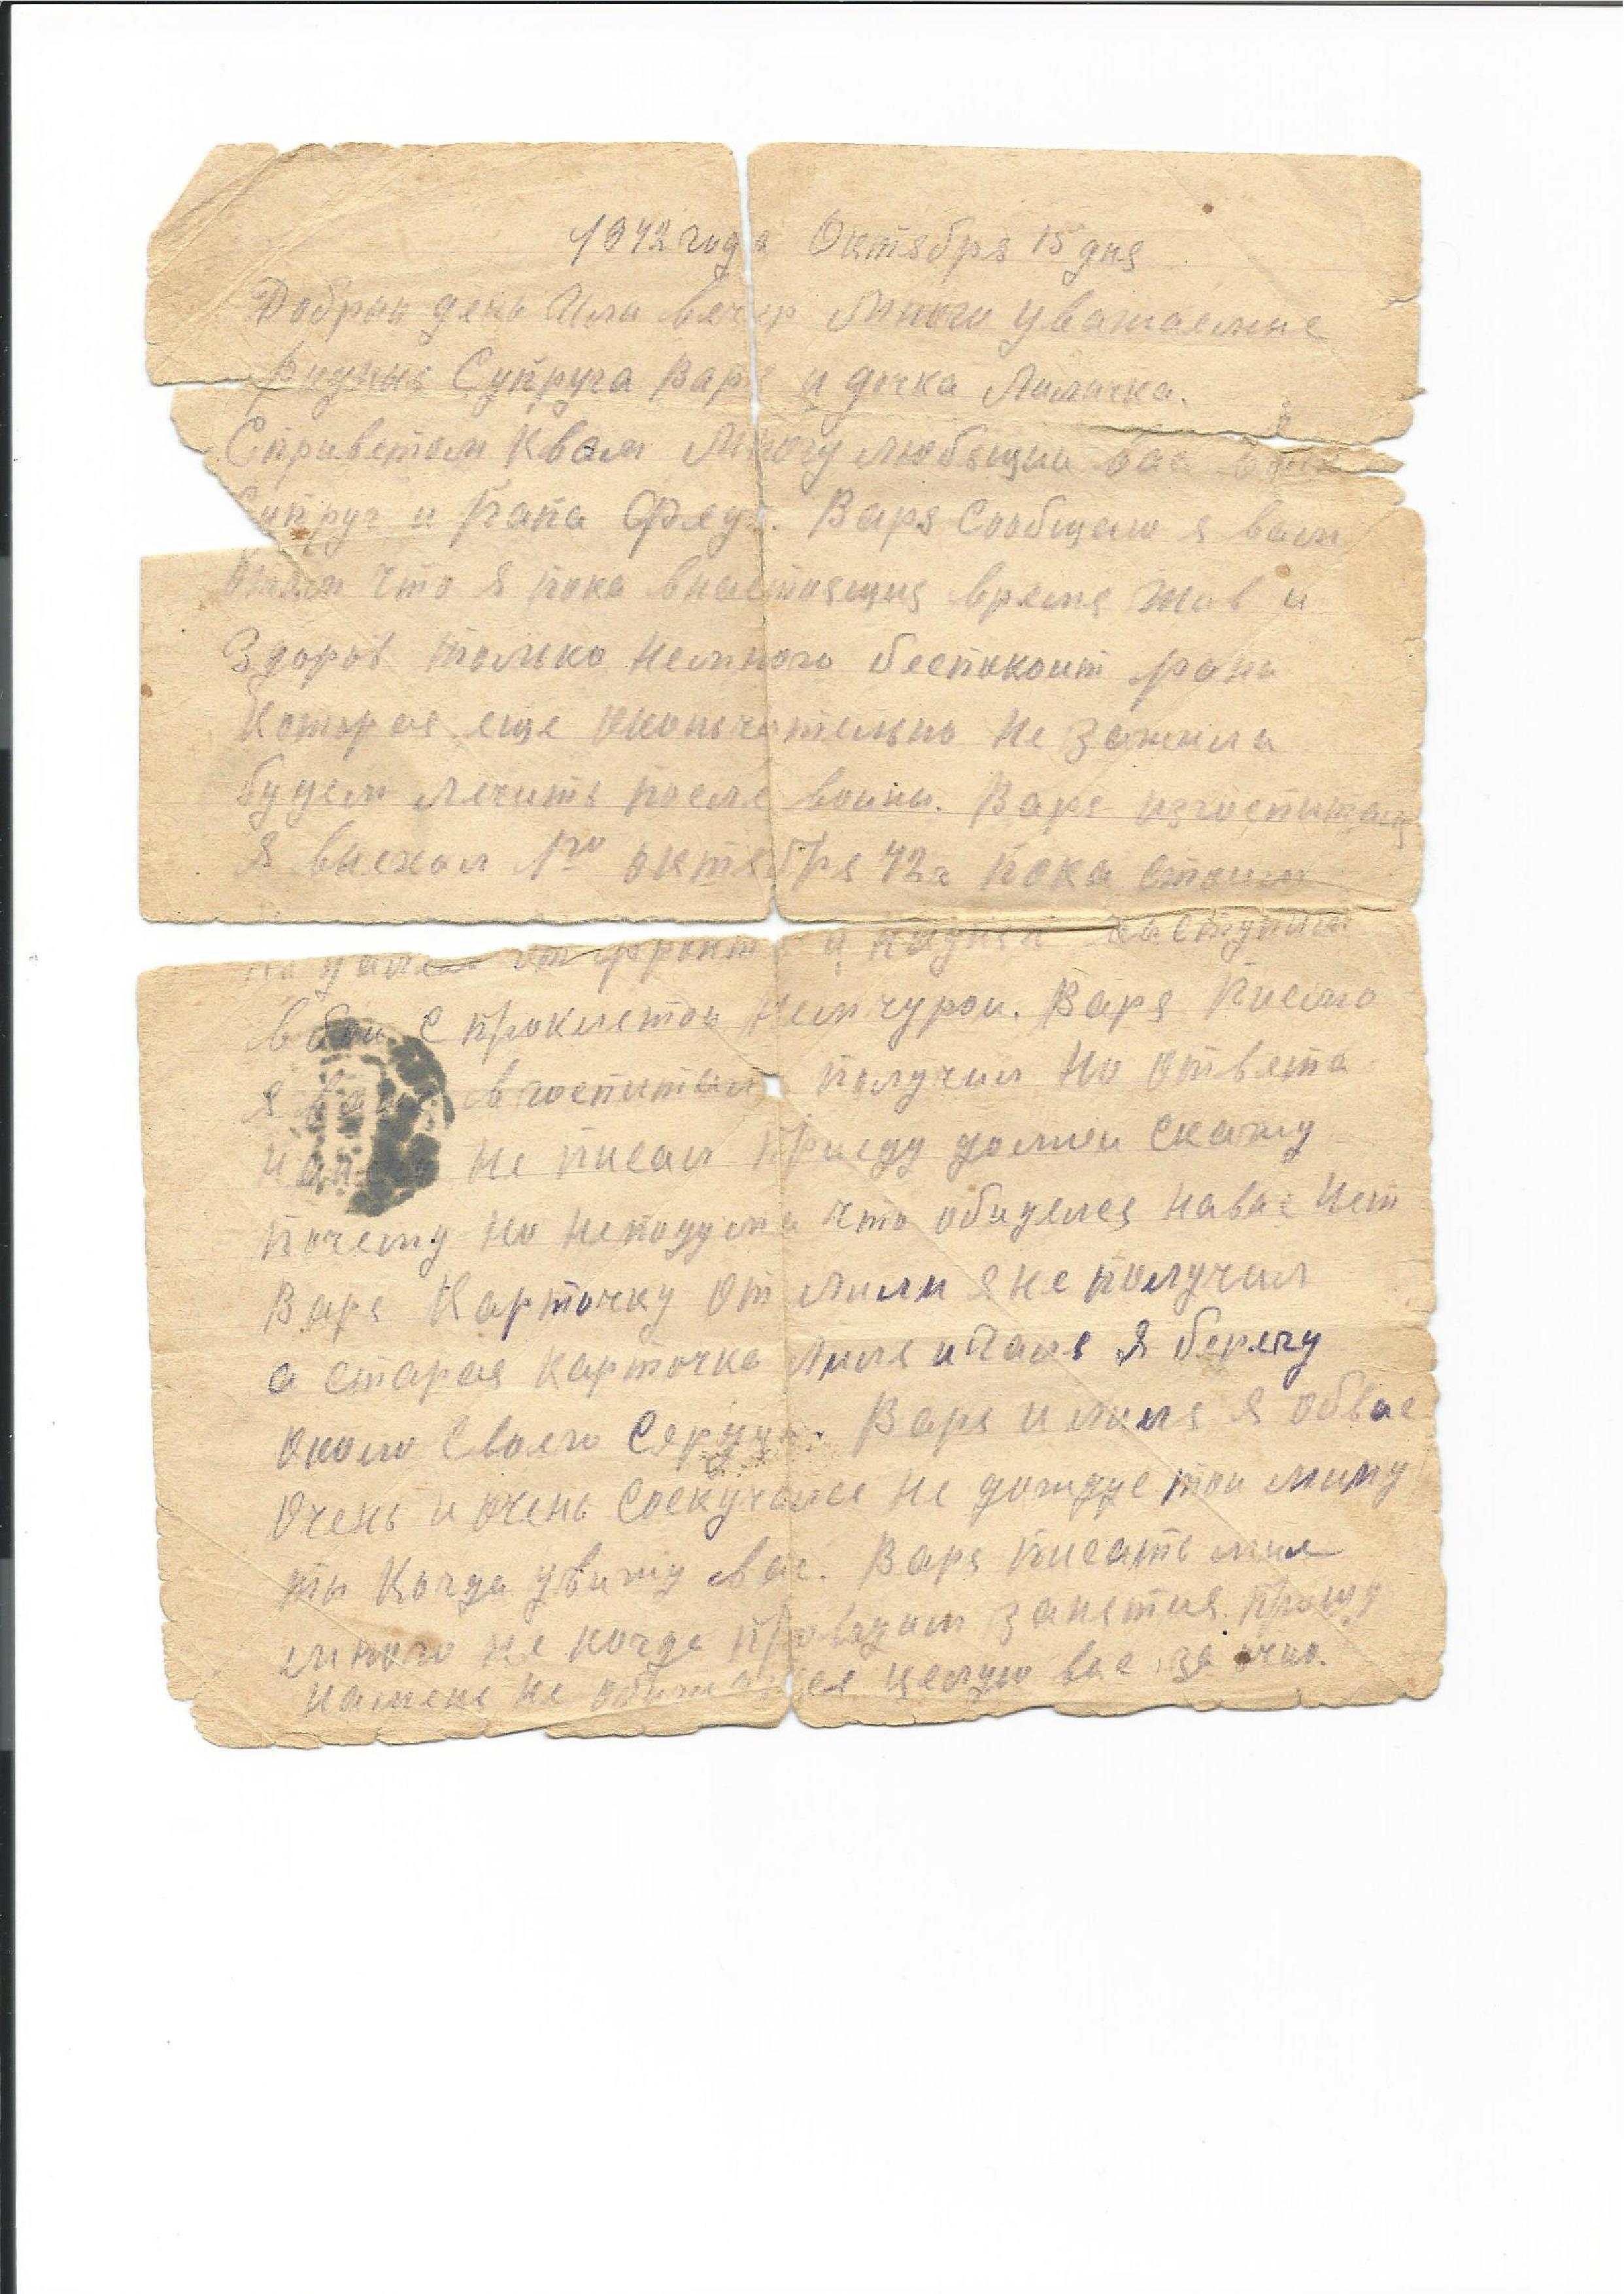 1942 года Октября 15 дня
Добрый день Или вечер Много уважаемые
Родные Супруга Варя и дочка Лиличка.
Сприветом Квам Многу любящии вас ваш
Супруг и Папа Федя. Варя Сообщаю я вам
Отом что я пока внастоящия время жив и
Здоров только немного беспокоит рана
Которая еще Окончательно не зажила
будем лечить после воины. Варя изгоспиталя
Я выехал 1го октября 42г пока стоим
от фронта и наступит
в бои с проклетои Немчурои. Варя Писмо
я вгоспитали получил Но Ответа
не писал Приеду домои Скажу
почему но неподумаи что обиделся навас Нет
Варя Карточку От Лили я не получил
а старая карточка Лиля и Галя Я берегу
Около Своего Сердца. Варя и Лиля Я обвас
Очень и очень Соскучался не дождусе тои мину
ты Когда увижу вас. Варя писать мне
много не когда проводим занятия. Прошу
наменя не обижайся целую вас за очно.